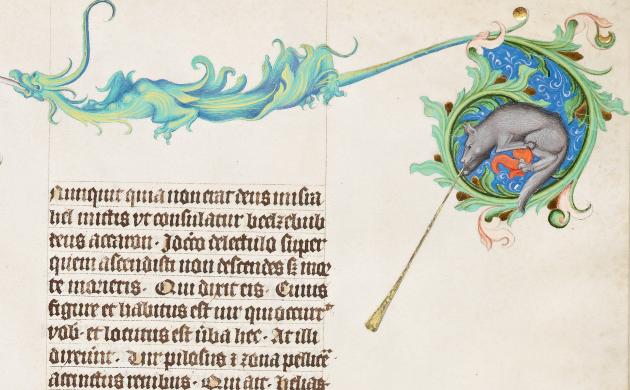 Nunquit quia non erat deus in isra
hel mittis vt consulatur beelzebub
deus accaron · Jdcco de lectulo super
quem ascendisti non descendes sz mor
te morieris · Qui dixit eis · Cuius
figure et habitus est uir qui occurrt
vob · et locutus est uba hec · At illi
dixerunt · Vir pilosus z zona pellice
accinctus renibus · Qui ait · Helias